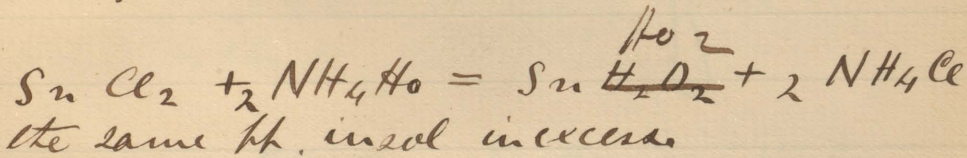 Ho 2
Sn Cl2 + 2 NH4Ho = Sn H2O2 + 2 NH4Cl
the same pp. insol in excess.